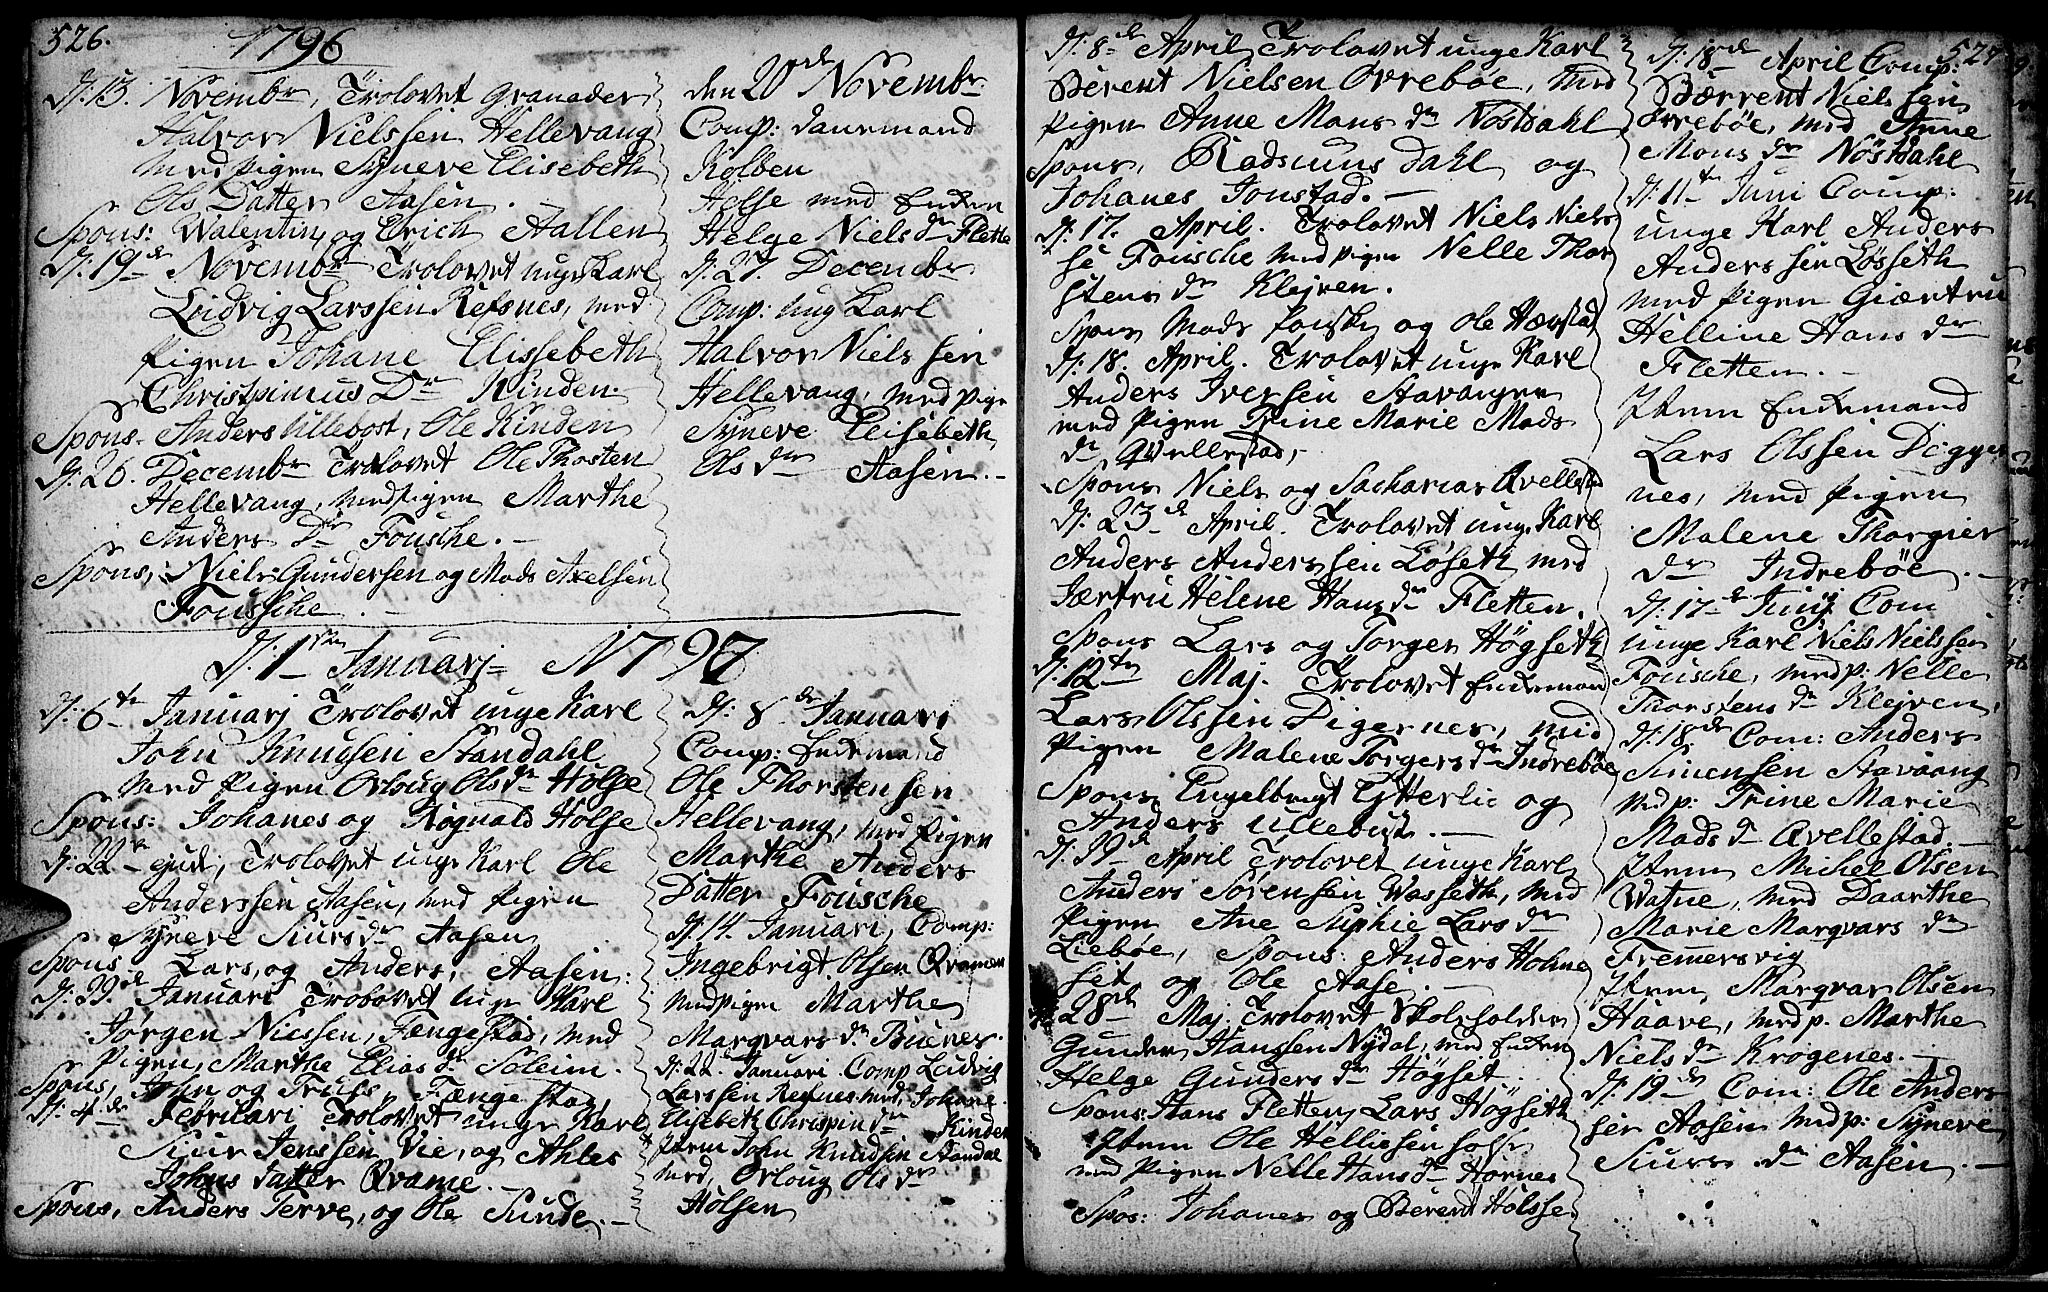 526.
1796
d: 13. Novembr, Trolovet Granader
Halvor Nielssen Hellevang
med Pigen Syneve Elisebeth
Ols Datter Aasen.
Spons: Valentin og Erich Aallen
d: 19de Novembr Trolovet unge Karl
Ludvig Larssen Refsnes, med
Pigen Johane Elissebeth
Christpinius Dr Kinden.
Spons. Anders Ullebost, Ole Kinden
d: 26. Decembr Trolovet Ole Thosten
Hellevang, med Pigen Marthe
Anders Dr Fousche.
Spons, Niels Gundersen og Mads Axelsen
Fousche.
den 20de Novembr:
Comp: Danemand
Kolben
Holse med Enken
Helge Niels dr Flette
d: 27. Decembr
Comp: ung Karl
Halvor Nielssen
Hellevang, med Pige
Syneve Elisebeth
Ols dr Aasen.
d: 1ste Januarj 1797
d: 6te Januarj Trolovet unge Karl
John Knudsen Standahl
med Pigen Orloug Ols dr Holse
Spons: Johanes og Rognald Holse
d: 22de ejusd, Trolovet unge Karl Ole
Anderssen Aasen, med Pigen
Syneve Siurs dr Aasen
Spons Lars, og Anders, Aasen.
d: 29de Januari Trolovet unge Karl
Jørgen Nielssen, Fængestad, med
Pigen, Marthe Elias dr Soleim.
Spons, John og Truls, Fængestad,
d: 4de Februari Trolovet unge Karl
Siur Jenssen Vie, og Ahles
Johns Datter Qvame.
Spons, Anders Terve, og Ole Sunde.
d: 8de Januari
Comp: Enkemand
Ole Thorstenssen
Hellevang, med Pigen
Marthe Anders
Datter Fousche
d: 14. Januari, Comp:
Ingebrigt Olsen Qvamen
med Pigen Marthe
Marqvars dr Buenes.
d: 22de Januari Comp Ludvig
Larssen Refsnes med, Johane
Elisebeth Chrispin dr Kinden
Item John Knudsen Standal
med, Orloug Ols dr
Holsen
d: 8de April Trolovet unge Karl
Berent Nielsen Ovrebøe, med
Pigen Anne Mons dr Nøstdahl
Spons, Radsmuns Dahl og
Johanes Jonstad.
d: 17. April. Trolovet Niels Niels
se Fousche med Pigen Nelle Thor
stens dr Klejven.
Spons Mads Fouske og Ole Hæstad
d: 18. April. Trolovet unge Karl
Anders Iversen Stavangen
med Pigen Trine Marie Mads
dr Qvellestad,
Spons Niels og Sacharias Qvellestad
d: 23de April. Trolovet unge Karl
Anders Anderssen Løseth med
Jærtru Helene Hans dr Fletten.
Spons Lars og Torger Høgseth
d: 12ten Maj. Trolovet Enkeman
Lars Olssen Digernes, med
Pigen Malene Torgers dr Indrebøe
Spons Engelbrigt Ytterlie og
Anders Ullebust.
d: 29de April Trolovet unge Karl
Anders Sørensen Vasseth, med
Pigen Ane Siphie Lars dr
Liebøe, Spons: Anders Holme
set og Ole Aase.
28de Maj. Trolovet Skoleholder
Gunder Hanssen Nydal, med Enken
Helge Gunders dr Høgset
Spons: Hans Fletten, Lars Høgseth
Item Ole Hellissen Holse
med Pigen Nelle Hans dr Hornes
Spos: Johanes og Berent Holsse
527
d: 18de April Comp:
Bærrent Nielssen
Øvrebøe, med Anne
Mons dr Nøstdahl
d: 11te Juni Comp:
unge Karl Anders
Anderssen Løsseth
med Pigen Giærtru
Helline Hans dr
Fletten.
Item Enkemand
Lars Olssen Digger
nes, med Pigen
Malene Thorgier
dr Indrebøe.
d: 17de Junj Com
unge Karl Niels Nielssen
Fousche, med p: Nelle
Thorstens dr Klejven,
d: 18de Com: Anders
Simensen Stavaang
med p: Trine Marie
Mads dr Qvellestad.
Item Michel Olsen
Watne, med Daarthe
Marie Marqvars dr
Fremersvig
Item Marqvar Olsen
Haave, med p. Marthe
Niels dr Krøgenes.
d: 19de Com: Ole Anders
sen Aasen med p: Syneve
Siurs dr Aasen.